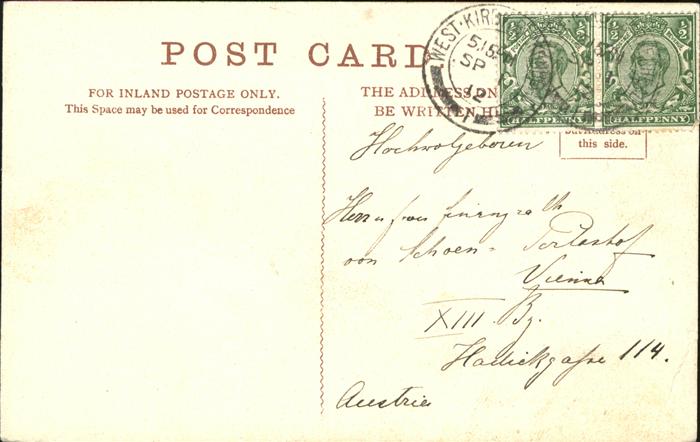 POST CARD
FOR INLAND POSTAGE ONLY.
This Space may be used for Correspondence
THE ADDRESS
BE WRITTEN HE
WEST·KIRB
5.15
SP
12
½ ½
HALFPENNY
½ ½
HALFPENNY
but Address on
this side.
Hochwolgeboren
Herrn
von Schoen-
Vienna
XIII. Bz.
Hadickgasse 114.
Austria